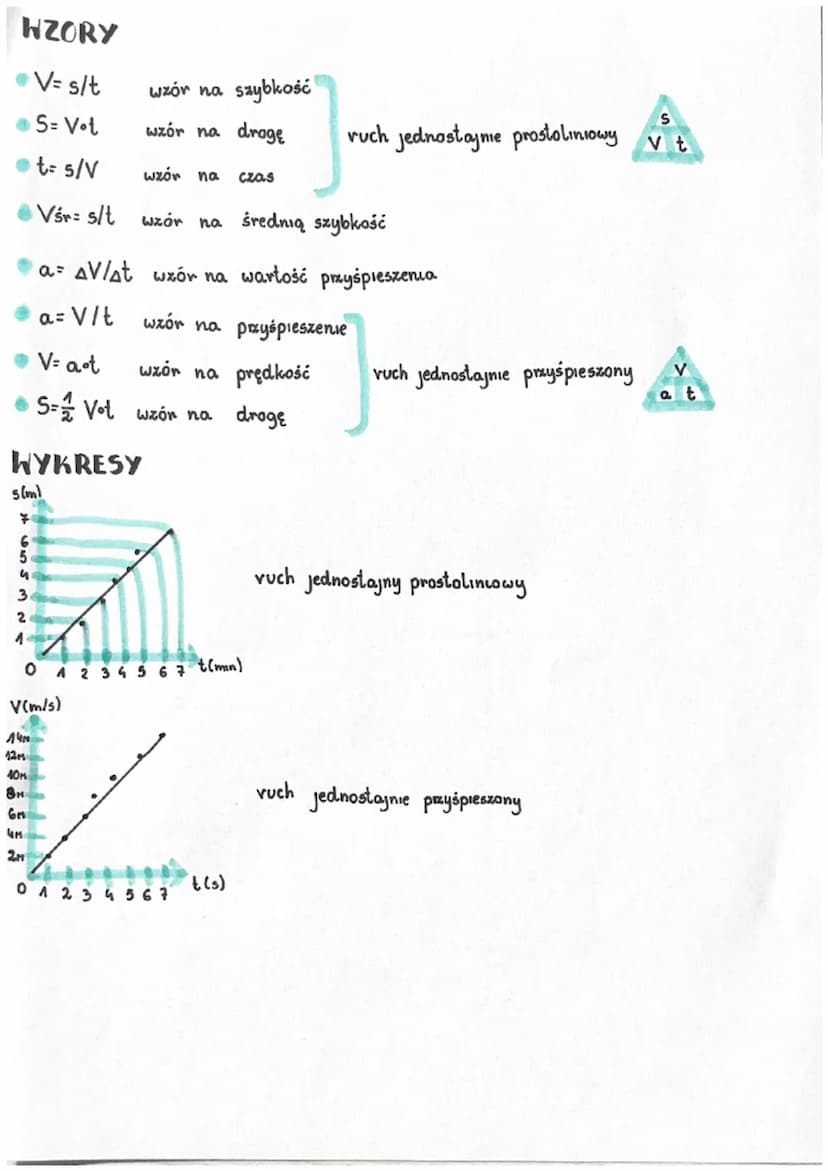 WZORY
V= s/t wzór na szybkość
S= V•t wzór na drogę
t= s/V wzór na czas
ruch jednostajnie prostoliniowy
s
V t
Vśr= s/t wzór na średnią szybkość
a= ΔV/Δt wzór na wartość przyśpieszenia
a= V/t wzór na przyśpieszenie
V= a•t wzór na prędkość
S=1/2 V•t wzór na drogę
ruch jednostajnie przyśpieszony
V
a t
WYKRESY
s(m)
7
6
5
4
3
2
1
0 1 2 3 4 5 6 7 t(min)
ruch jednostajny prostoliniowy
V(m/s)
14m
12m
10m
8m
6m
4m
2m
0 1 2 3 4 5 6 7 t(s)
ruch jednostajnie przyśpieszony